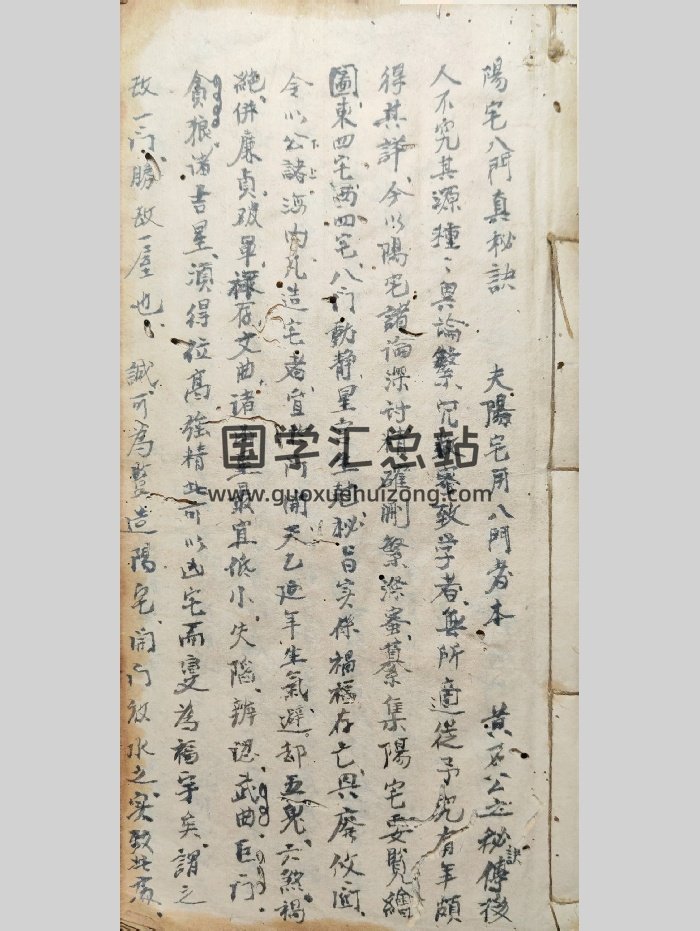 陽宅八門真秘訣 夫陽宅用八門者本 黄石公之秘傳後
訣
人不究其源種〻異論繁冗 致学者無所適從予究有年頗
得其詳今以陽宅諸論深討精確刪繁 集陽宅要覧繪
圖東四宅西四宅八门動静星 生尅秘旨实係禍福存亡興廢攸関
今以公諸海内凡造宅者宜 门開天乙延年生氣避却五鬼六煞禍
上下
絶併廉貞破軍禄存文曲诸 星最宜低小失陷辨認武曲巨门
貪狼诸吉星須得位高強精此可以凶宅而變為福宇矣謂之
改一门勝改一屋也 誠可為豎造陽宅開门放水之实
国学汇总站
www.guoxuehuizong.com